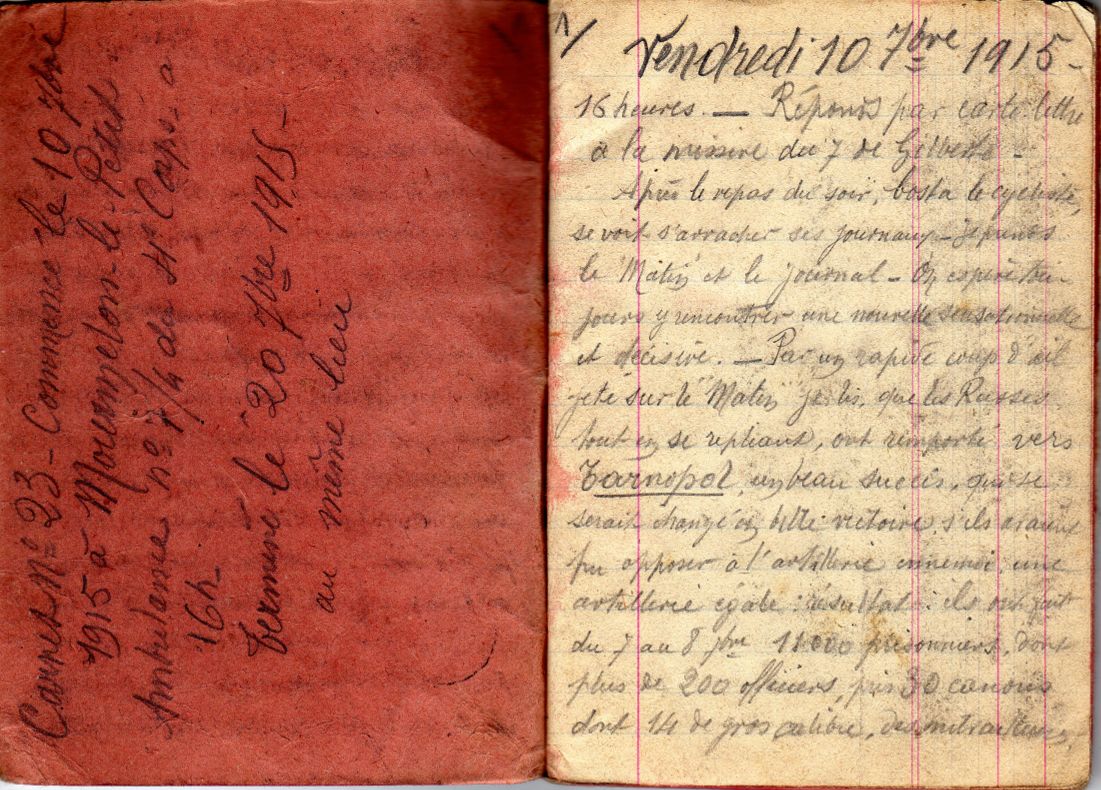 Carnet Nº 23 - Commencé le 10 7bre
1915 à Mourmelon-le-Petit -
Ambulance nº 7/4 du 4e Corps - à
16h
Terminé le 20 7bre 1915 -
au même lieu
1/
Vendredi 10 7bre 1915 -
16 heures. — Réponds par carte lettre
à la missive du 7 de Gilberte -
Après le repas du soir, Costa le cycliste,
se voit s'arracher ses journaux - je prends
le "Matin" et le journal - On espère tou-
jours y rencontrer une nouvelle sensationnelle
et décisive. — Par un rapide coup d'œil
jeté sur le "Matin" je lis, que les Russes
tout en se repliant, ont remporté vers
Tarnopol, un beau succès, qui se
serait changé en belle victoire s'ils avaient
pu opposer à l'artillerie ennemie une
artillerie égale : résultat : ils ont fait
du 7 au 8 7bre 11000 prisonniers, dont
plus de 200 officiers, pris 30 canons
dont 14 de gros calibre, des mitrailleuses,